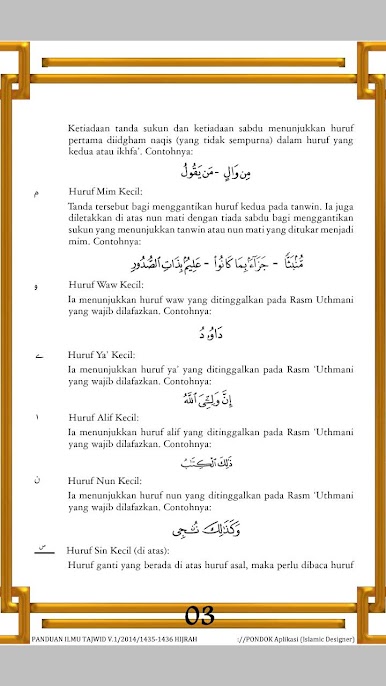 Ketiadaan tanda sukun dan ketiadaan sabdu menunjukkan huruf
pertama diidgham naqis (yang tidak sempurna) dalam huruf yang
kedua atau ikhfa'. Contohnya:
مِن وَالٍ - مَن يَقُولُ
م Huruf Mim Kecil:
Tanda tersebut bagi menggantikan huruf kedua pada tanwin. Ia juga
diletakkan di atas nun mati dengan tiada sabdu bagi menggantikan
sukun yang menunjukkan tanwin atau nun mati yang ditukar menjadi
mim. Contohnya:
مُّنۢبَثًّا - جَزَآءَۢ بِمَا كَانُوا۟ - عَلِيمُۢ بِذَاتِ ٱلصُّدُورِ
و Huruf Waw Kecil:
Ia menunjukkan huruf waw yang ditinggalkan pada Rasm Uthmani
yang wajib dilafazkan. Contohnya:
دَاوُۥدُ
ے Huruf Ya' Kecil:
Ia menunjukkan huruf ya' yang ditinggalkan pada Rasm 'Uthmani
yang wajib dilafazkan. Contohnya:
إِنَّ وَلِـِّۧىَ ٱللَّهُ
ا Huruf Alif Kecil:
Ia menunjukkan huruf alif yang ditinggalkan pada Rasm 'Uthmani
yang wajib dilafazkan. Contohnya:
ذَٰلِكَ ٱلْكِتَٰبُ
ن Huruf Nun Kecil:
Ia menunjukkan huruf nun yang ditinggalkan pada Rasm 'Uthmani
yang wajib dilafazkan. Contohnya:
وَكَذَٰلِكَ نُـۨجِى
س Huruf Sin Kecil (di atas):
Huruf ganti yang berada di atas huruf asal, maka perlu dibaca huruf
03
PANDUAN ILMU TAJWID V.1/2014/1435-1436 HIJRAH ://PONDOK Aplikasi (Islamic Designer)